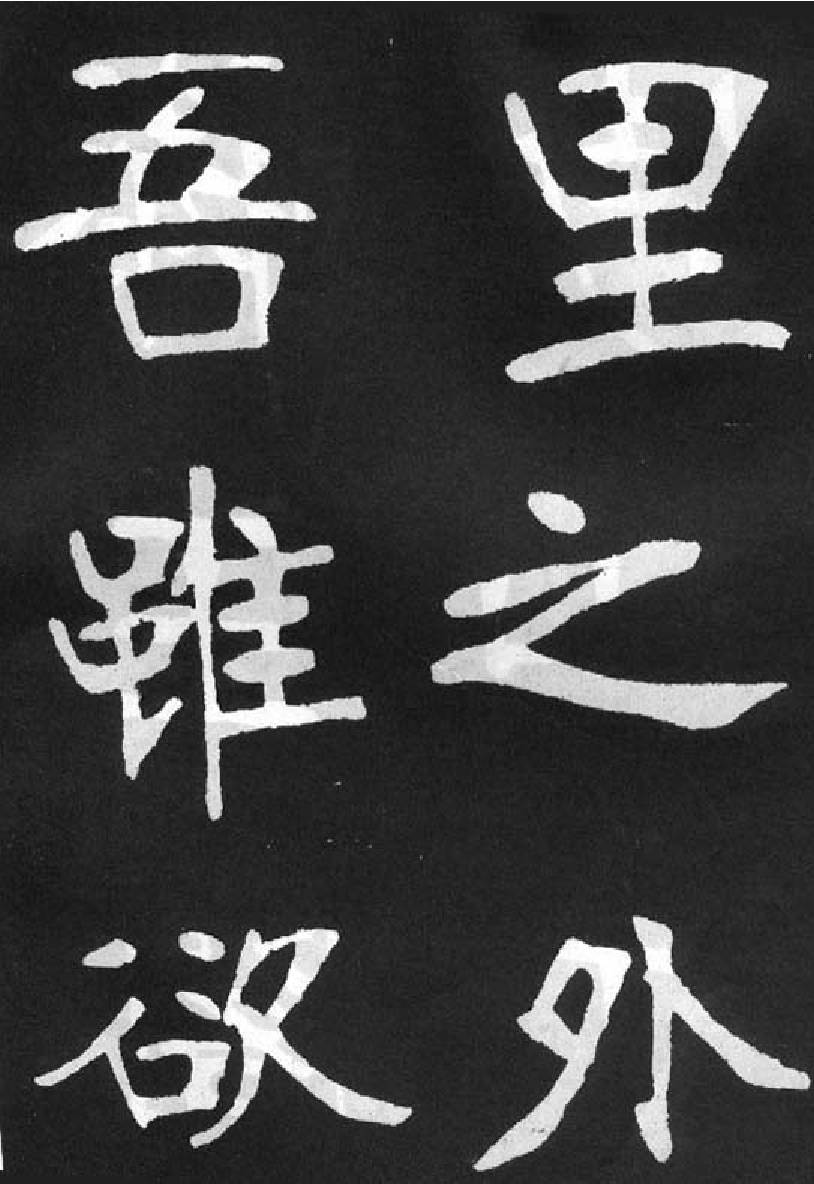 里之外
吾雖欲